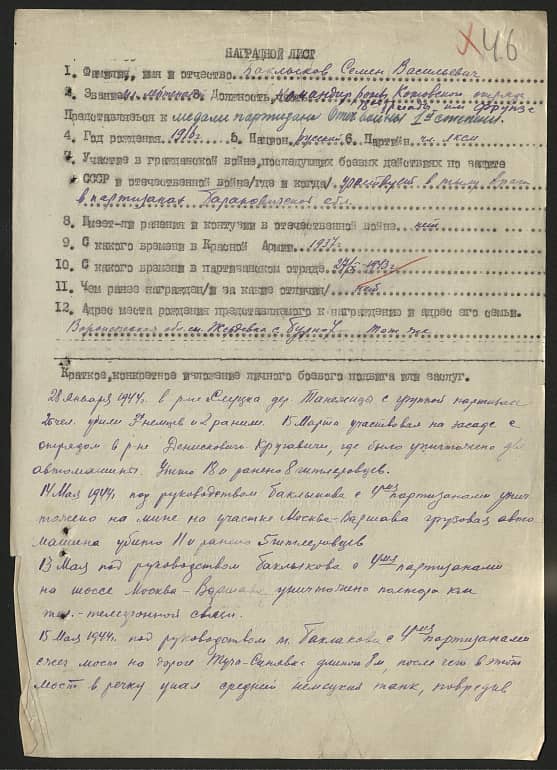 46
НАГРАДНОЙ ЛИСТ
1. Фамилия, имя и отчество Баклыков Семен Васильевич
2. Звание мл. лейтенант Должность, Командир роты, Котовского отряда
им. Фрунзе
Представляется к медали партизана Отеч войны 1й степени.
4. Год рождения 1910г. 5. Национ. русский 6. Партийн. чл. лксм
7. Участие в гражданской войне, последующих боевых действиях по защите
СССР и отечественной войне/где и когда/ участвует в тылу врага
в партизанах Барановичской обл.
8. Имеет-ли ранения и контузии в отечественной войне нет
9. С какого времени в Красной Армии 1937г
10. С какого времени в партизанском отряде 1943г
11. Чем ранее награжден/и за какие отличия/ нет
12. Адрес места рождения представляемого к награждению и адрес его семьи.
Воронежская обл. ст. Жердевка с. Бурнак
Краткое, конкретное изложение личного боевого подвига или заслуг.
28 января 1944г. в р-не Слуцка дер. Танежицы с группой партизан
убили 3х немцев и 2 ранили. 15 марта участвовал на засаде с
отрядом в р-не Денискович-Круговичи, где было уничтожено две
автомашины. Убито 18 и ранено 8 гитлеровцев.
14 мая 1944г под руководством Баклыкова с 4мя партизанами унич
тожено на мине на участке Москва-Варшава грузовая авто
машина убито 11 и ранено 5 гитлеровцев
13 мая под руководством Баклыкова с 4мя партизанами
на шоссе Москва-Варшава уничтожено полтора км
тел.-телефонной связи.
15 мая 1944г. под руководством т. Баклакова с 4мя партизанами
сжег мост на дороге Туча-Синявка длиной 8м, после чего в этот
мост в речку упал средний немецкий танк, повредив